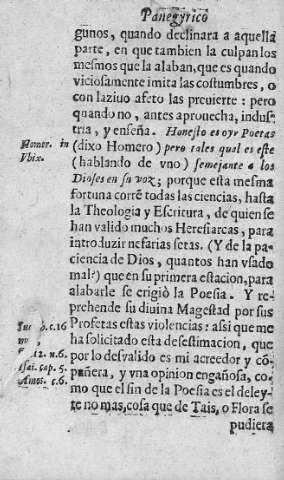 Panegyrico
gunos, quando declinara a aquella
parte, en que tambien la culpan los
mesmos que la alaban, que es quando
viciosamente imita las costumbres, o
con laziuo afeto las preuierte: pero
quando no, antes aprouecha, indus-
tria, y enseña. Honesto es oyr Poetas
Homer. in (dixo Homero) pero tales qual es este
Vlix. (hablando de vno) semejante a los
Dioses en su voz; porque esta mesma
fortuna corrē todas las ciencias, hasta
la Theologia y Escritura, de quien se
han valido muchos Heresiarcas, para
introduzir nefarias setas. (Y de la pa-
ciencia de Dios, quantos han vsado
mal?) que en su primera estacion, para
alabarle se erigiò la Poesia. Y re-
prehende su diuina Magestad por sus
c.16 Profetas estas violencias: assi que me
ha solicitado esta desestimacion, que
12. n.6. por lo desvalido es mi acreedor y cō-
Isai. cap. 5. pañera, y vna opinion engañosa, co-
Amos. c.6. mo que el fin de la Poesia es el deley-
te no mas, cosa que de Tais, o Flora se
pudiera